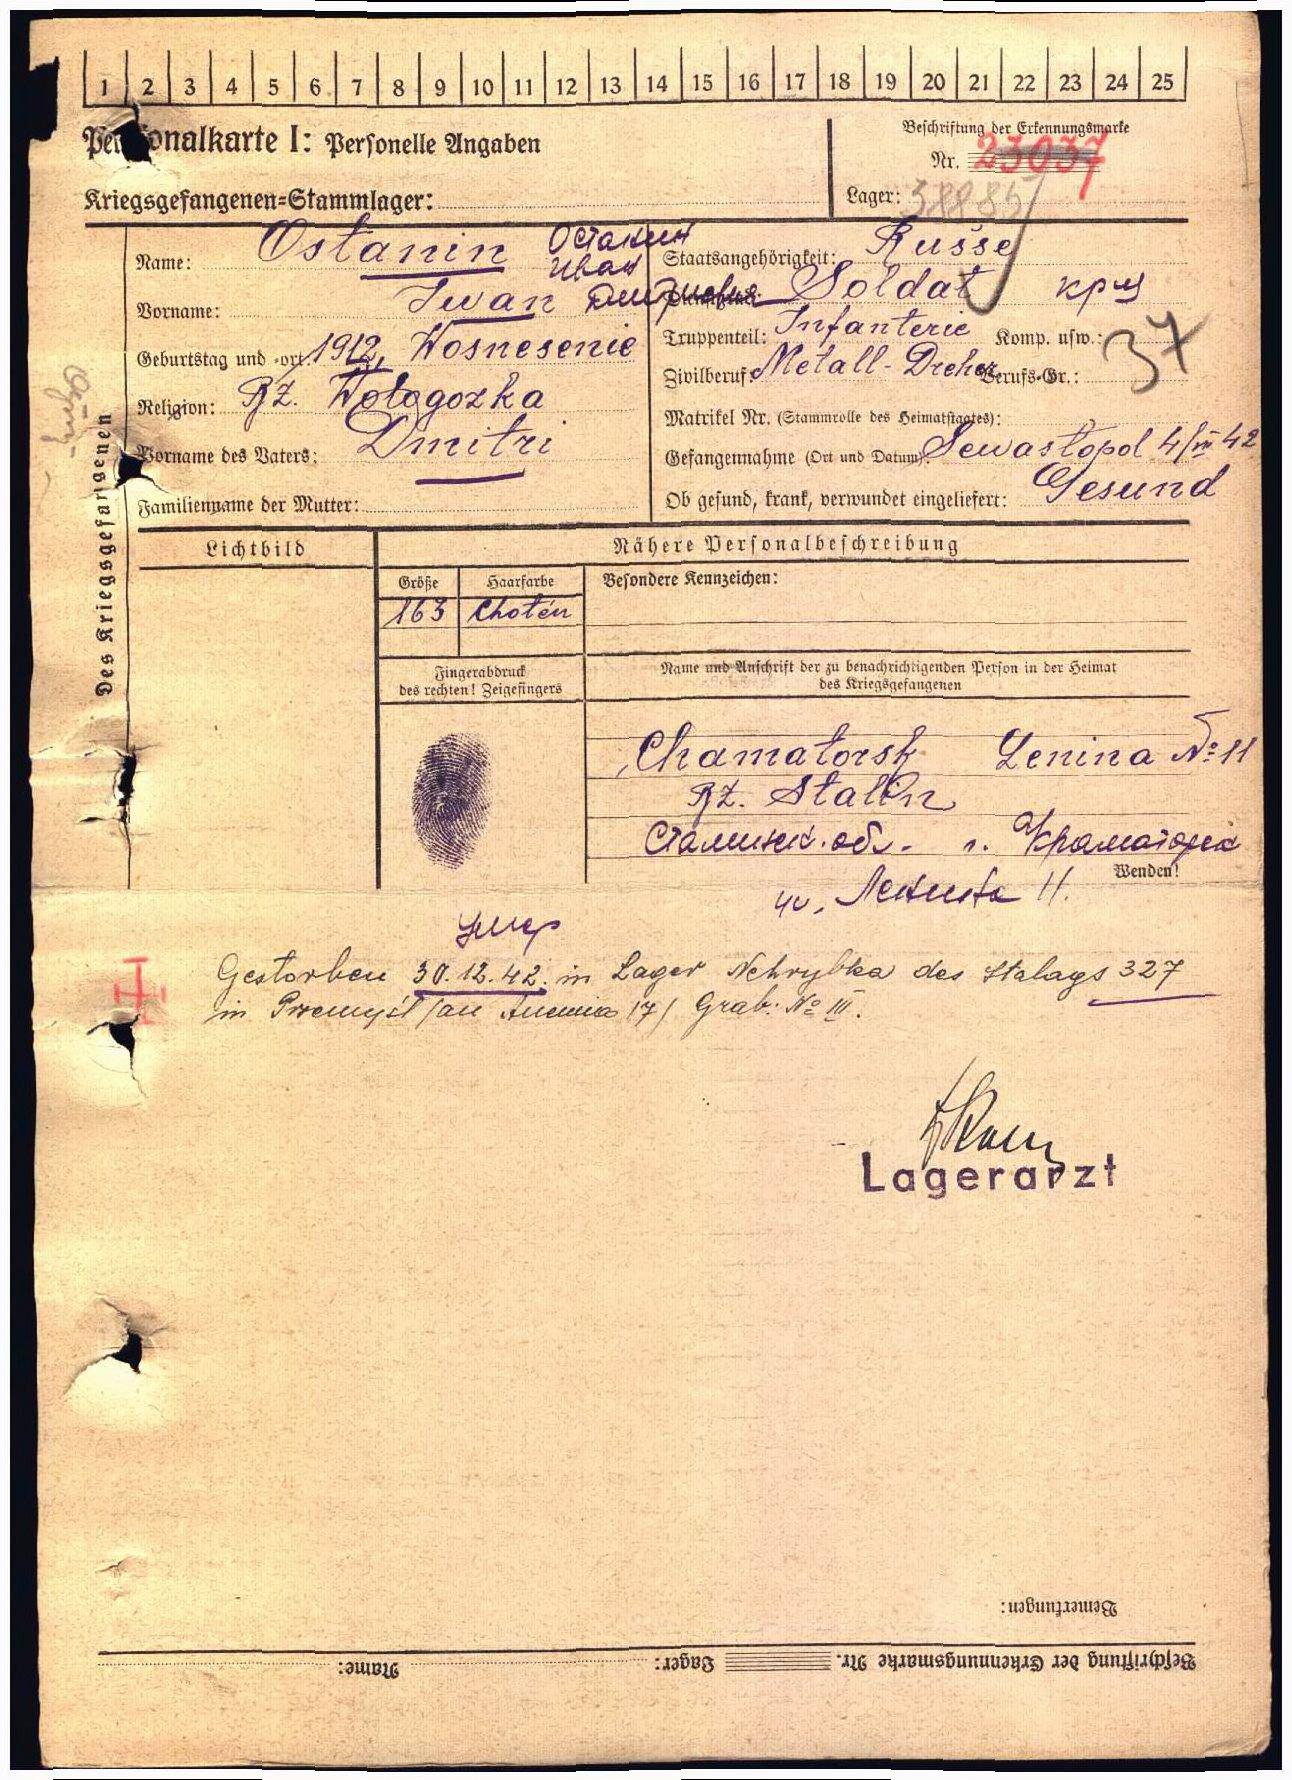 1 2 3 4 5 6 7 8 9 10 11 12 13 14 15 16 17 18 19 20 21 22 23 24 25
Personalkarte I: Personelle Angaben
Kriegsgefangenen-Stammlager:
Beschriftung der Erkennungsmarke
Nr. 23037
Lager:
Des Kriegsgefangenen
Name: Ostanin Останин
Иван
Vorname: Iwan Дмитриевич
Geburtstag und -ort: 1912, Wosnesenie
Religion: Rz. Wologozka
Vorname des Vaters: Dmitri
Familienname der Mutter:
Staatsangehörigkeit: Russe
Soldat крц
Truppenteil: Infanterie Komp. usw.: 37
Zivilberuf: Metall-Dreher Berufs-Gr.:
Matrikel Nr. (Stammrolle des Heimatstaates):
Gefangennahme (Ort und Datum): Sewastopol 4/VII 42
Ob gesund, krank, verwundet eingeliefert: Gesund
Lichtbild
Nähere Personalbeschreibung
Größe Haarfarbe Besondere Kennzeichen:
163 Chotén
Fingerabdruck
des rechten! Zeigefingers
Name und Anschrift der zu benachrichtigenden Person in der Heimat
des Kriegsgefangenen
Chamatorsk Lenina № 11
Rz. Stalin
Сталинск. обл. г. Краматорск
Wenden!
ул. Ленина 11.
Умер
Gestorben 30.12.42. in Lager Nehrybka des Stalags 327
in Przemyśl /an Anemia 17/ Grab: № III.
Lagerarzt
Bemerkungen:
Beschriftung der Erkennungsmarke Nr. Lager: Name: